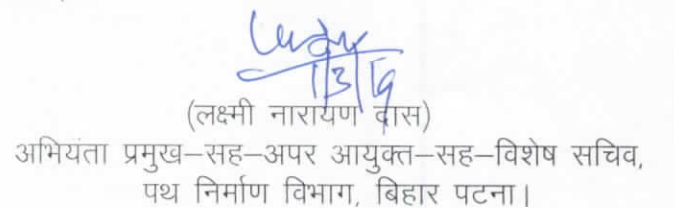 1/3/19
(लक्ष्मी नारायण दास)
अभियंता प्रमुख–सह–अपर आयुक्त–सह–विशेष सचिव,
पथ निर्माण विभाग, बिहार पटना।